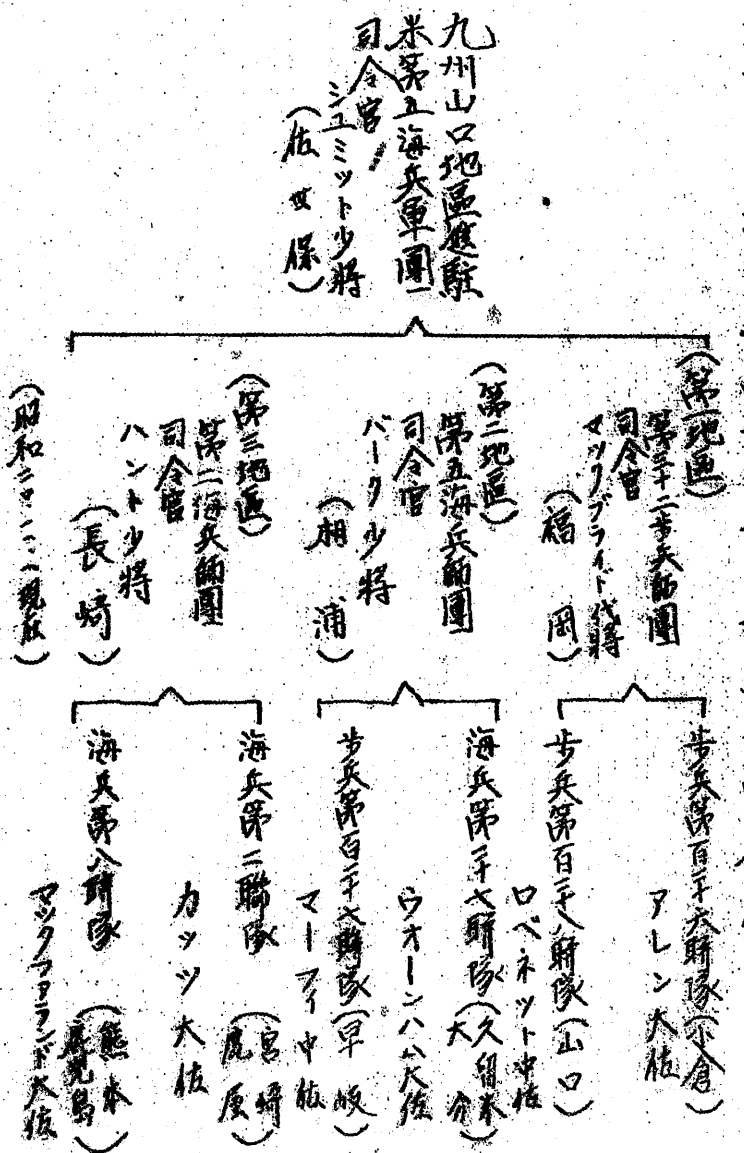 九州山口地區進駐
米第五海兵軍團
司令官
シユミット少將
(佐世保)
(第一地區)
第三十二歩兵師團
司令官
マックブライド代將
(福岡)
歩兵第百二十六聯隊(小倉)
アレン大佐
歩兵第百二十八聯隊(山口)
ロベネット中佐
(第二地區)
第五海兵師團
司令官
バーク少將
(相浦)
海兵第二十七聯隊(久留米
大分)
ウオーンハム大佐
歩兵第百二十七聯隊(早岐)
マーフィ中佐
(第三地區)
第二海兵師團
司令官
ハント少將
(長崎)
海兵第二聯隊(宮崎
鹿屋)
カッツ大佐
海兵第八聯隊(熊本
鹿児島)
マックファランド大佐
(昭和二〇、一一、八現在)